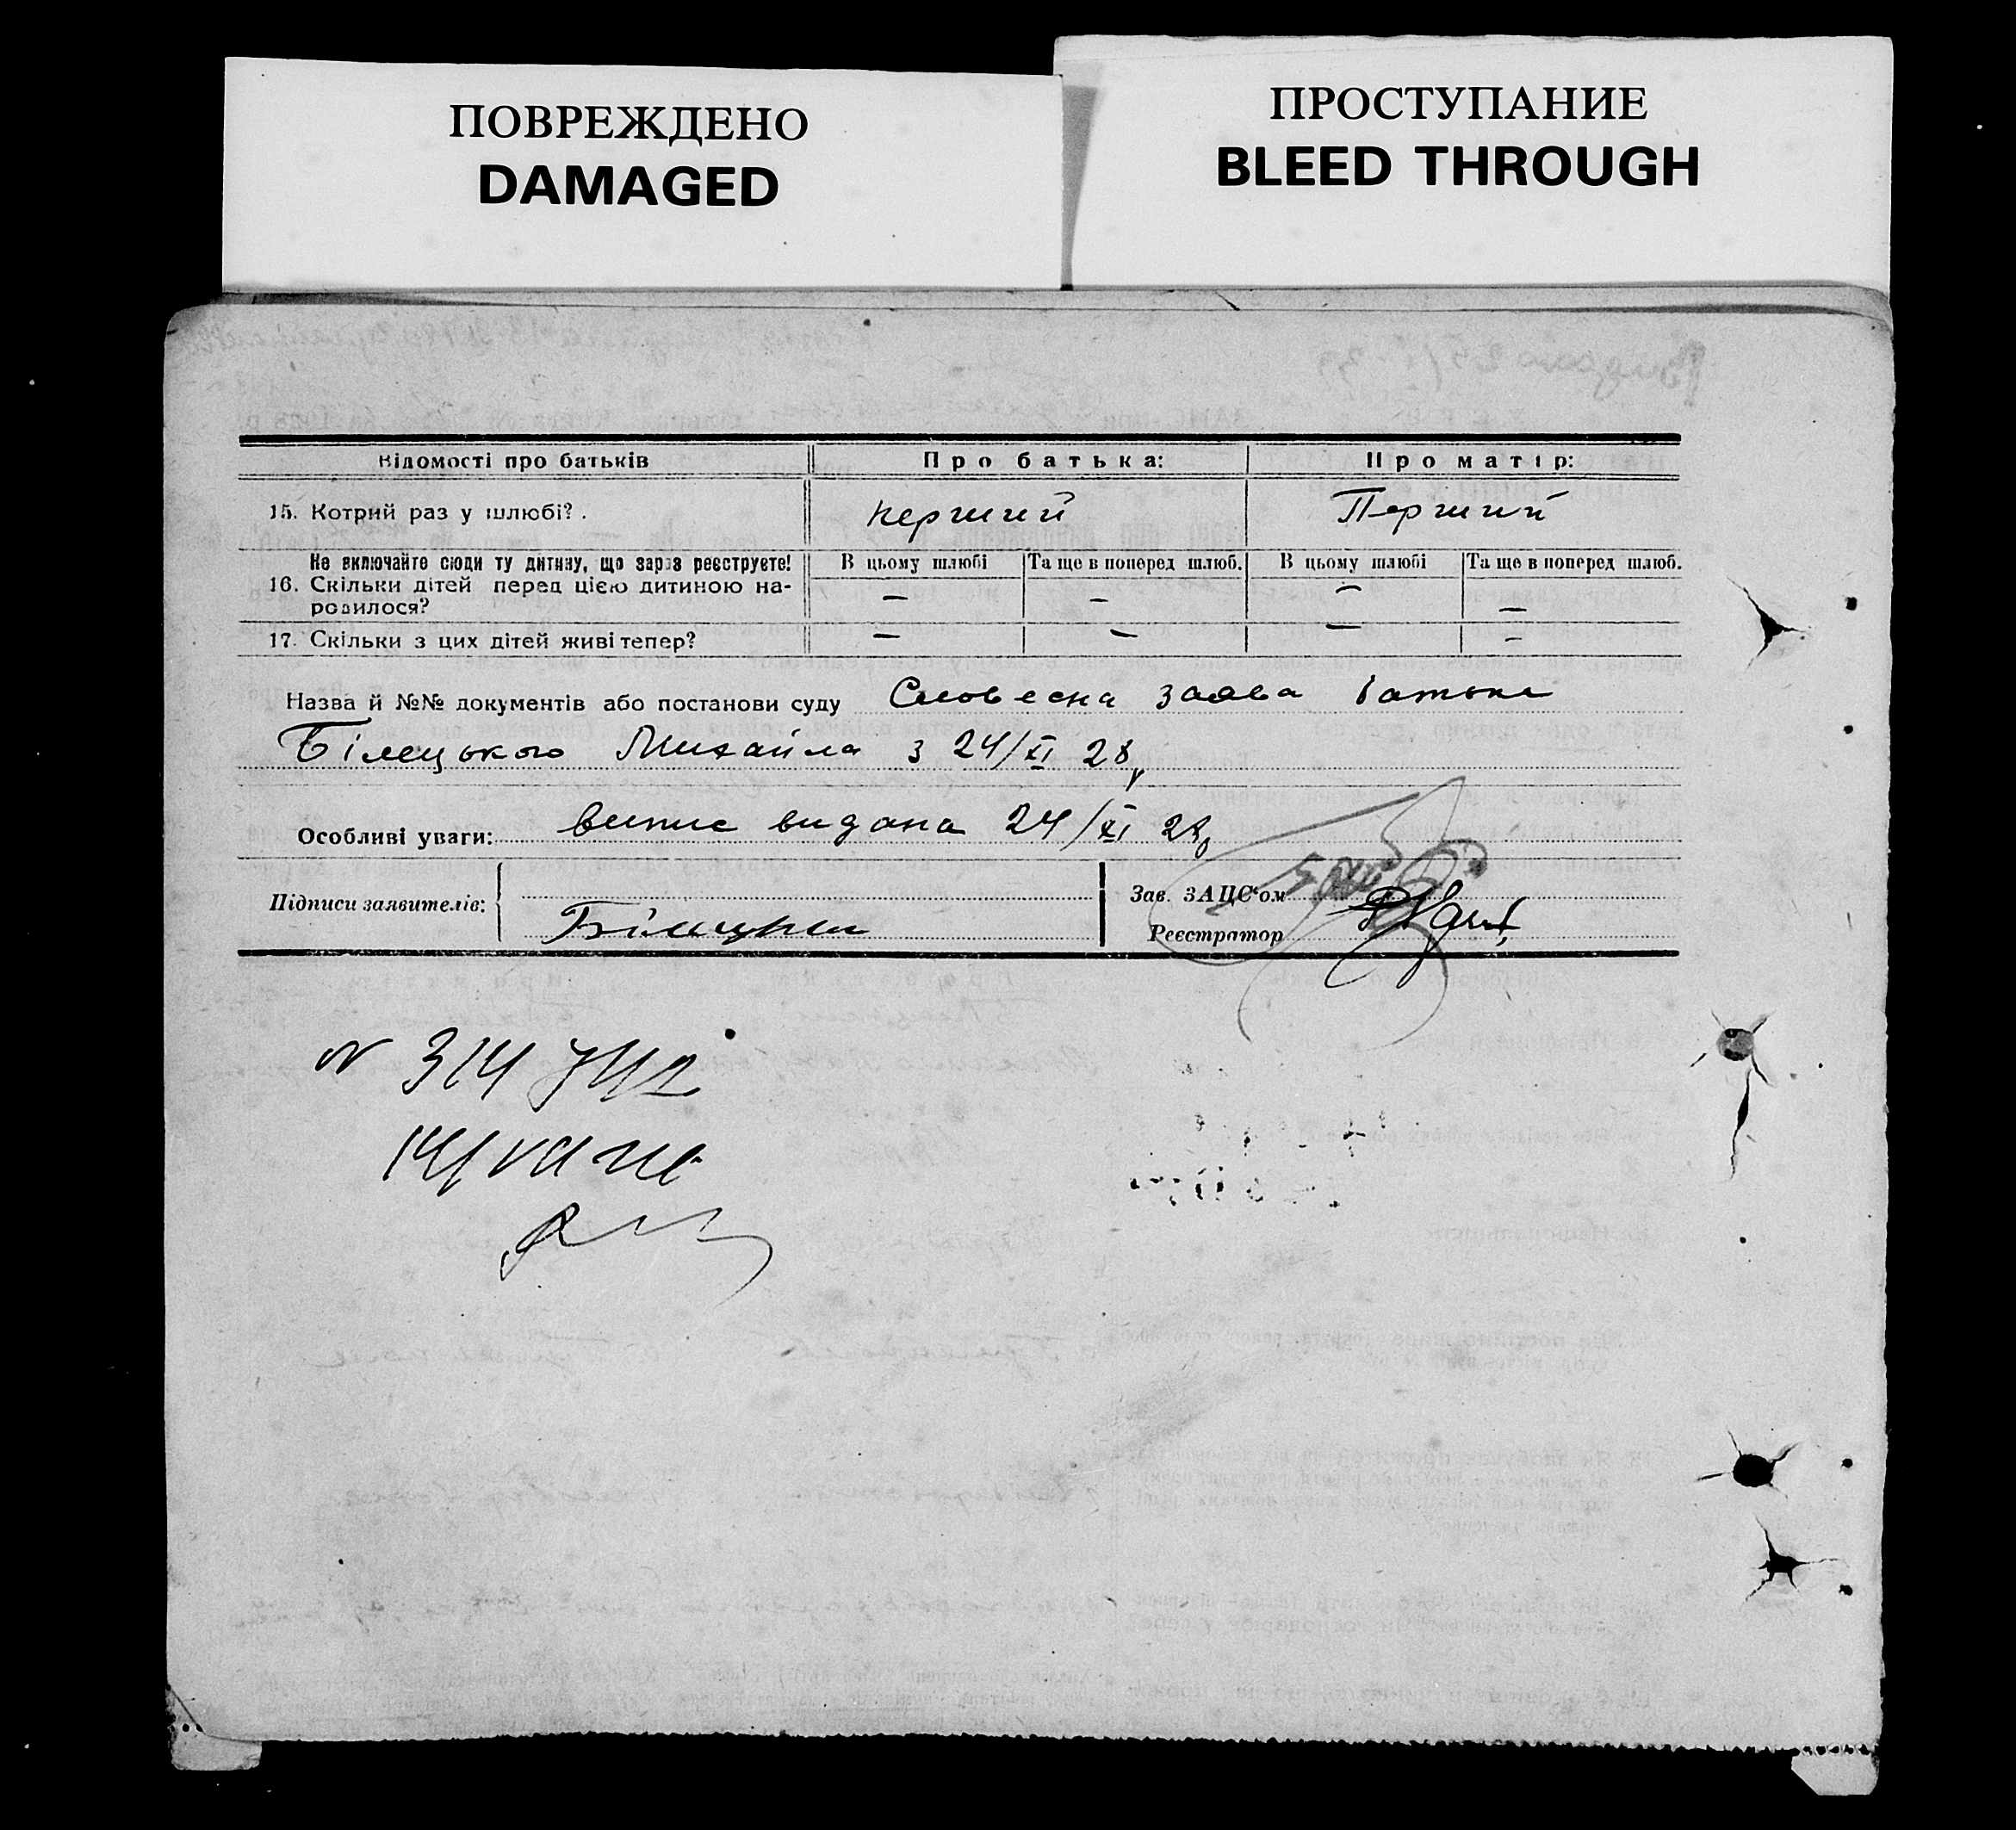 ПОВРЕЖДЕНО
DAMAGED
ПРОСТУПАНИЕ
BLEED THROUGH
Відомості про батьків Про батька: Про матір:
15. Котрий раз у шлюбі? . перший Перший
Не включайте сюди ту дитину, що зараз реєструєте! В цьому шлюбі Та ще в поперед шлюб. В цьому шлюбі Та ще в поперед шлюб.
16. Скільки дітей перед цією дитиною на- — — — —
родилося?
17. Скільки з цих дітей живі тепер? — — — —
Назва й №№ документів або постанови суду Словесна заява батька
Білецького Михайла з 24/XI 28р
Особливі уваги: випис видана 24/XI 28р
Підписи заявителів: Білецький
Зав. ЗАЦС'ом
Реєстратор
N 314742